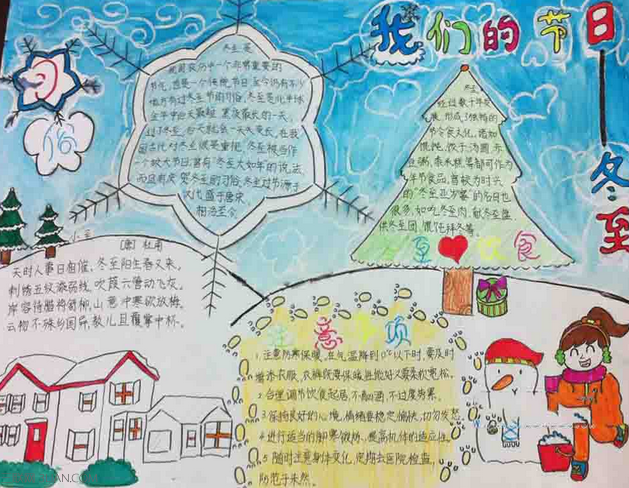 我们的节日
冬至
冬至是
我国农历中一个非常重要的
节气,也是一个传统节日,至今仍有不少
地方有过冬至节的习俗。冬至是北半球
全年中白天最短、黑夜最长的一天,
过了冬至,白天就会一天天变长,在我
国古代对冬至很是重视,冬至被当作
一个较大节日,曾有“冬至大如年”的说法,
而且有庆贺冬至的习俗。冬至过节源于
汉代,盛于唐宋,
相沿至今。
冬至
经过数千年发
展,形成了独特的
节令食文化。诸如
馄饨、饺子、汤圆、赤
豆粥、黍米糕等都可作为
年节食品。曾较为时兴
的“冬至亚岁宴”的名目也
很多,如吃冬至肉、献冬至盘、
供冬至团、馄饨拜冬等。
冬至饮食
小至
[唐]杜甫
天时人事日相催,冬至阳生春又来。
刺绣五纹添弱线,吹葭六管动飞灰。
岸容待腊将舒柳,山意冲寒欲放梅。
云物不殊乡国异,教儿且覆掌中杯。
注意事项
1.注意防寒保暖。在气温降到0°以下时,要及时
增添衣服,衣裤既要保暖性能好,又要柔软宽松。
2.合理调节饮食起居,不酗酒、不过度劳累。
3.保持良好的心境,情绪要稳定、愉快,切勿发怒
4.进行适当的御寒锻炼,提高机体的适应性。
5.随时注意身体变化,定期去医院检查,
防范于未然。